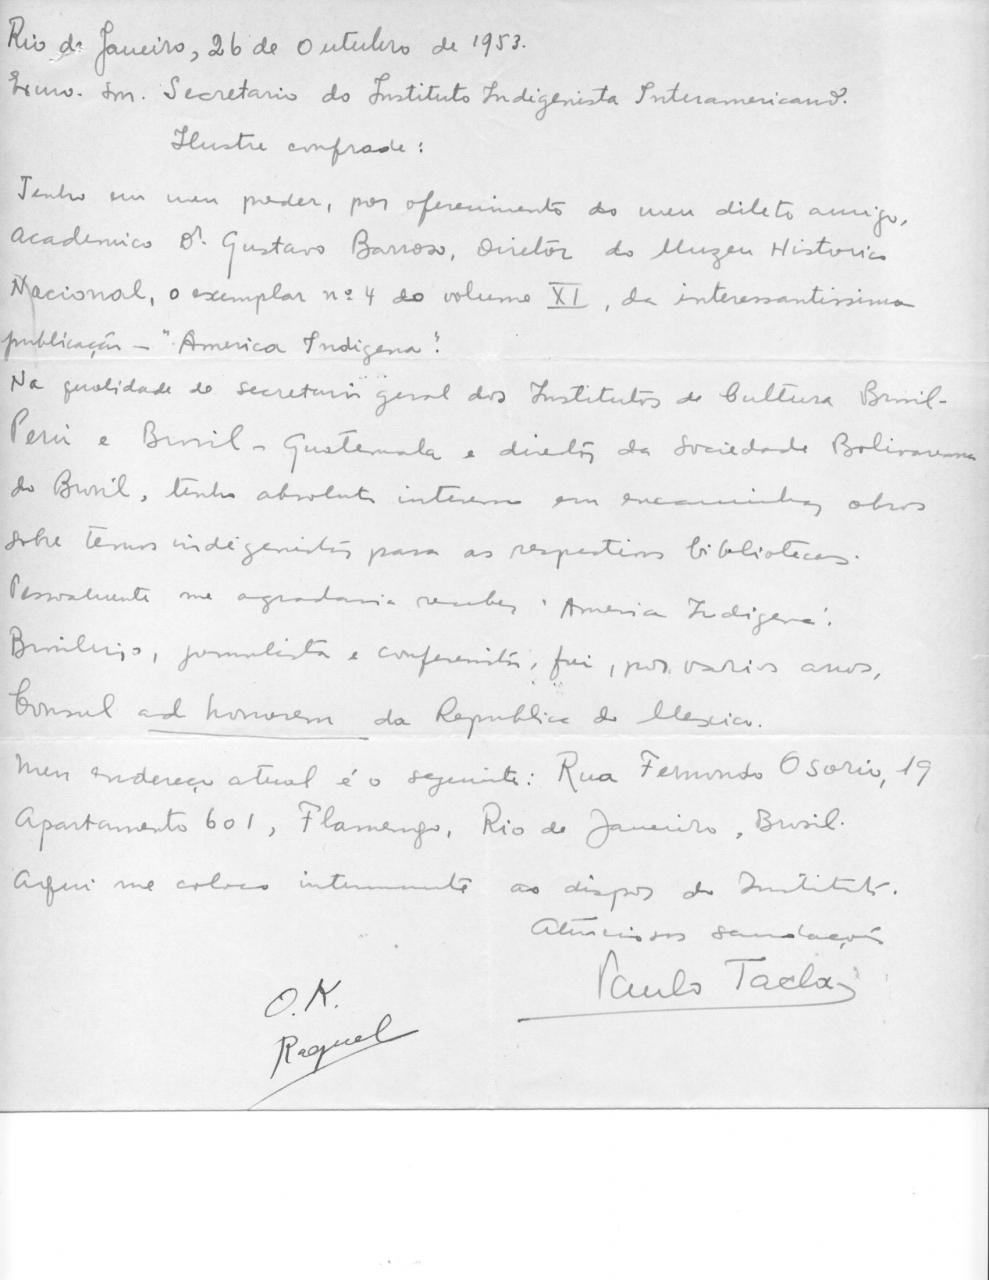 Rio de Janeiro, 26 de Outubro de 1953.
Exmo. Snr. Secretario do Instituto Indigenista Interamericano.
Ilustre confrade:
Tenho em meu poder, por oferecimento do meu dileto amigo,
academico Dr. Gustavo Barroso, Diretor do Muzeu Historico
Nacional, o exemplar nº 4 do volume XI, da interessantissima
publicação – "America Indigena".
Na qualidade de secretario geral dos Institutos de Cultura Brasil-
Perú e Brasil – Guatemala e diretor da Sociedade Bolivareana
do Brasil, tenho absoluto interesse em encaminhar obras
sobre temas indigenistas para as respectivas bibliotecas.
Pessoalmente me agradaria receber "America Indigena".
Brasileiro, jornalista e conferencista, fui, por varios anos,
Consul ad honorem da Republica do Mexico.
Meu endereço atual é o seguinte: Rua Fernando Osorio, 19
Apartamento 601, Flamengo, Rio de Janeiro, Brasil.
Aqui me coloco inteiramente ao dispor do Instituto.
Atenciosas saudações
Paulo Tacla
O.K.
Raquel